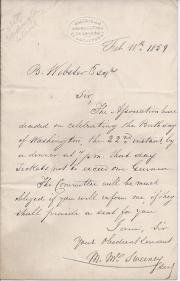 AMERICAN ASSOCIATION
Feb 11th 1859
B. Webster Esqr
Sir,
The Association have
decided on celebrating the Birthday
of Washington, the 22nd instant by
a dinner at 7 p.m. that day
Tickets not to exceed one Guinea
The Committee will be much
obliged if you will inform me if they
shall provide a seat for you.
I am, Sir
Your Obedient Servant
M. Mc Sweeney